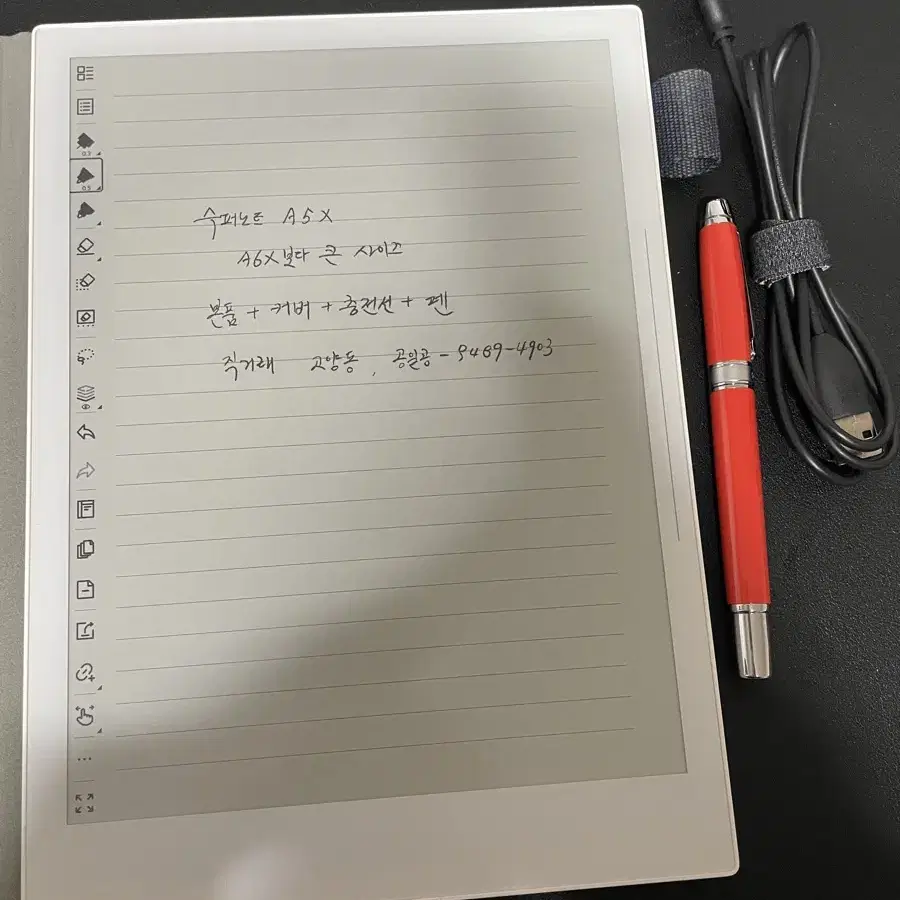 0.3
0.5
수퍼노트 A5X
A6X보다 큰 사이즈
본품 + 커버 + 충전선 + 펜
직거래 고양동, 공일공-9469-4903